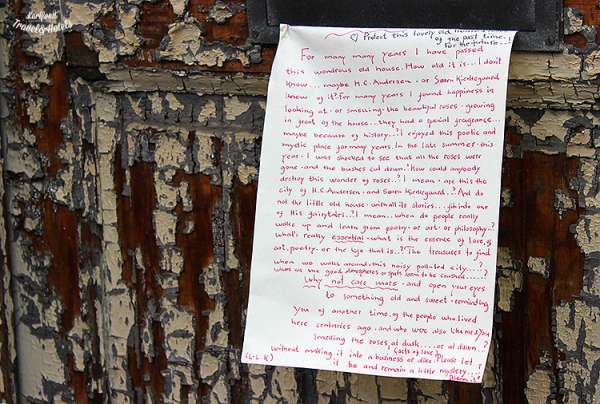 Kerbonit
Travel&Hotels
♡ Protect this lovely old
of the past time..
for the future...
For many many years I have passed
this wondrous old house. How old it is... I don't
know.... maybe H.C Andersen. or Søren Kierkegaard
knew of it? For many years I found happiness in
looking at. or smelling. the beautiful roses. growing
in front of the house... they had a special fragrance...
maybe because of history..? I enjoyed this poetic and
mystic place for many years. In the late summer. this
year. I was shocked to see that all the roses were
gone. and the bushes cut down.! How could anybody
destroy this wonder of roses..? I mean. are this the
city of H.C Andersen. and Søren Kierkegaard..? And do
not the little old house. with all its stories... fit into one
of His fairytales..? I mean... when do people really
wake up and learn from poetry. or art. or philosophy..?
What's really essential. what is the essence of love, &
art, poetry. or the life that is..? The treasures to find
when we walks around. this noisy polluted city....?
when all the good atmospheres or spots seem to be crushed.....?
Why not care more. and open your eyes
to something old and sweet. reminding
you of another time. of the people who lived
here centuries ago. and who were also
smelling the roses at dusk.... or at dawn..?
(acts of love)
without making it into a business or else. Please let
it be and remain a little mystery...
(L.L.K)